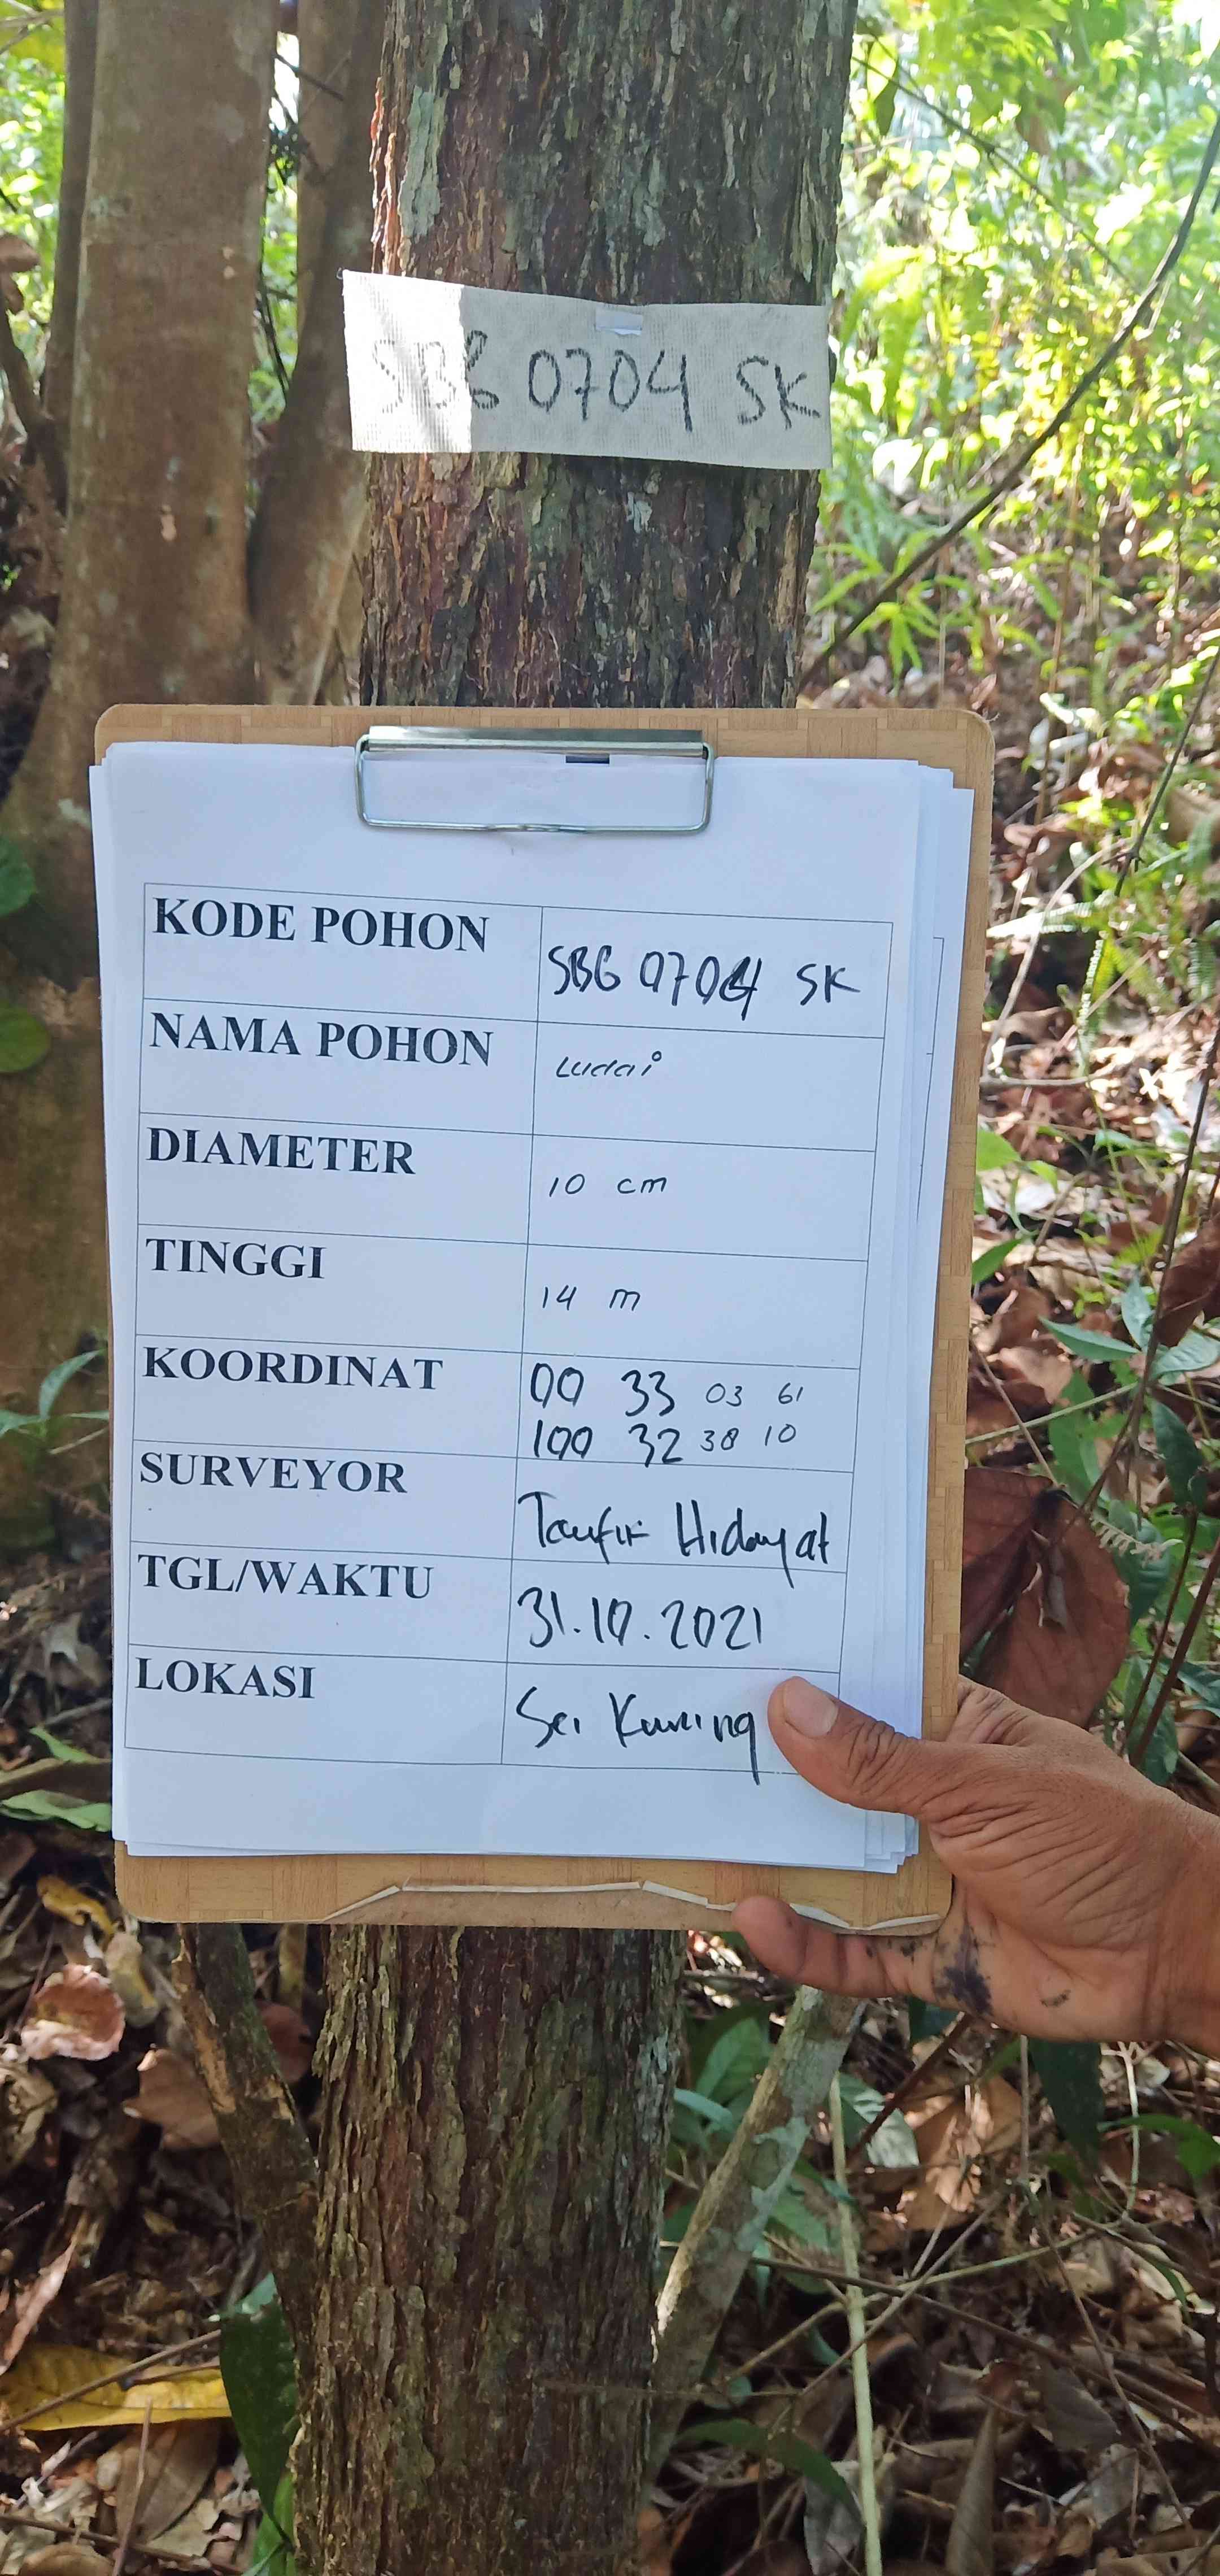 SBG 0704 SK
KODE POHON SBG 0704 SK
NAMA POHON Ludai
DIAMETER 10 cm
TINGGI 14 m
KOORDINAT 00 33 03 61
100 32 38 10
SURVEYOR Taufik Hidayat
TGL/WAKTU 31.10.2021
LOKASI Sei Kuning